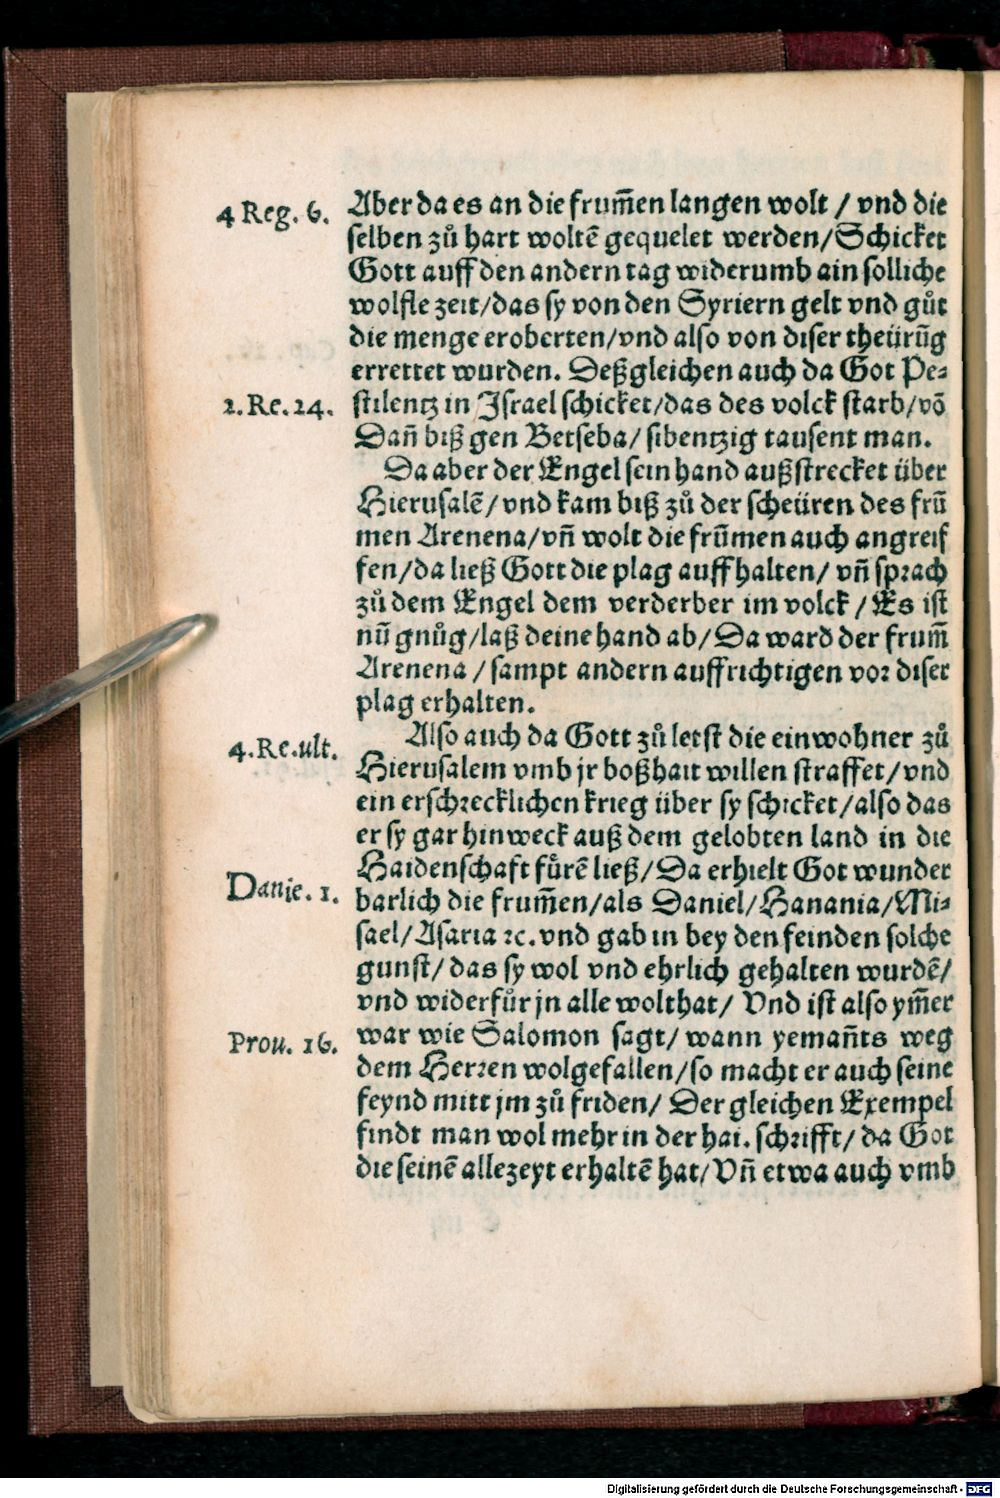 4 Reg. 6.
Aber da es an die frum̃en langen wolt / vnd die
selben zů hart woltẽ gequelet werden/Schicket
Gott auff den andern tag widerumb ain solliche
wolfle zeit/das sy von den Syriern gelt vnd gůt
die menge eroberten/vnd also von diser theürũg
errettet wurden. Deßgleichen auch da Got Pe⸗
2. Re. 24.
stilentz in Israel schicket/das des volck starb/võ
Dañ biß gen Betseba/ sibentzig tausent man.
Da aber der Engel sein hand außstrecket über
Hierusalẽ/ vnd kam biß zů der scheüren des frũ
men Arenena/vñ wolt die frũmen auch angreif
fen/da ließ Gott die plag auffhalten/ vñ sprach
zů dem Engel dem verderber im volck / Es ist
nũ gnůg/laß deine hand ab/ Da ward der frum̃
Arenena / sampt andern auffrichtigen vor diser
plag erhalten.
4. Re. ult.
Also auch da Gott zů letst die einwohner zů
Hierusalem vmb jr boßhait willen straffet/vnd
ein erschrecklichen krieg über sy schicket/also das
er sy gar hinweck auß dem gelobten land in die
Haidenschaft fůrẽ ließ/Da erhielt Got wunder
Danie. 1.
barlich die frum̃en/als Daniel/Hanania/Mi⸗
sael/Asaria ꝛc. vnd gab in bey den feinden solche
gunst/ das sy wol vnd ehrlich gehalten wurdẽ/
vnd widerfůr jn alle wolthat/ Vnd ist also ym̃er
Prou. 16.
war wie Salomon sagt/ wann yemañts weg
dem Herren wolgefallen/so macht er auch seine
feynd mitt jm zů friden/ Der gleichen Exempel
findt man wol mehr in der hai. schrifft/ da Got
die seinẽ allezeyt erhaltẽ hat/Vñ etwa auch vmb
Digitalisierung gefördert durch die Deutsche Forschungsgemeinschaft - DFG